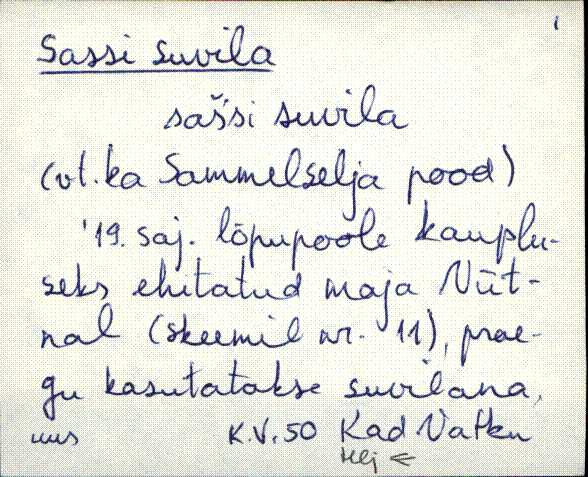 1
Sassi suvila
saśśi suvila
(vt. ka Sammelselja pood)
'19. saj. lõpupoole kauplu-
seks ehitatud maja Nüt-
nal (skeemil nr. 11), prae-
gu kasutatakse suvilana,
uus K.V. 50 Kad Vatku
Hlj <